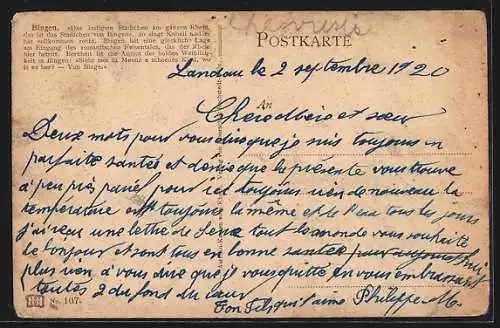 Bingen. „Das lustigste Städtchen am ganzen Rhein,
das ist das Städtchen von Bingen", so singt
hat willkommen heute. Bingen hat eine glückliche Lage
am Eingang des romantischen Felsentales, das der Rhein
hier betritt. Berühmt ist die Anmut der holden Weiblich-
keit in Bingen: „Sieht mer in Meenz e schoenes Kind, wo
is es her? — Vun Binge."
POSTKARTE
Landau le 2 septembre 1920
An
Cher odberg et sœur
Deux mots pour vous dire que je suis toujours en
parfaite santé et désire que la présente vous trouve
a peu près pareil pour ici toujours rien de nouveau la
température est toujours la même et de l'eau tous les jours
j'ai reçu une lettre de tout le monde vous souhaite
le bonjour et sont tous en bonne santé pour aujourd'hui
plus rien a vous dire que je vous quitte en vous embrassant
toutes 2 du fond du cœur
Ton fils qui t'aime Philippe M.
Nr. 107.